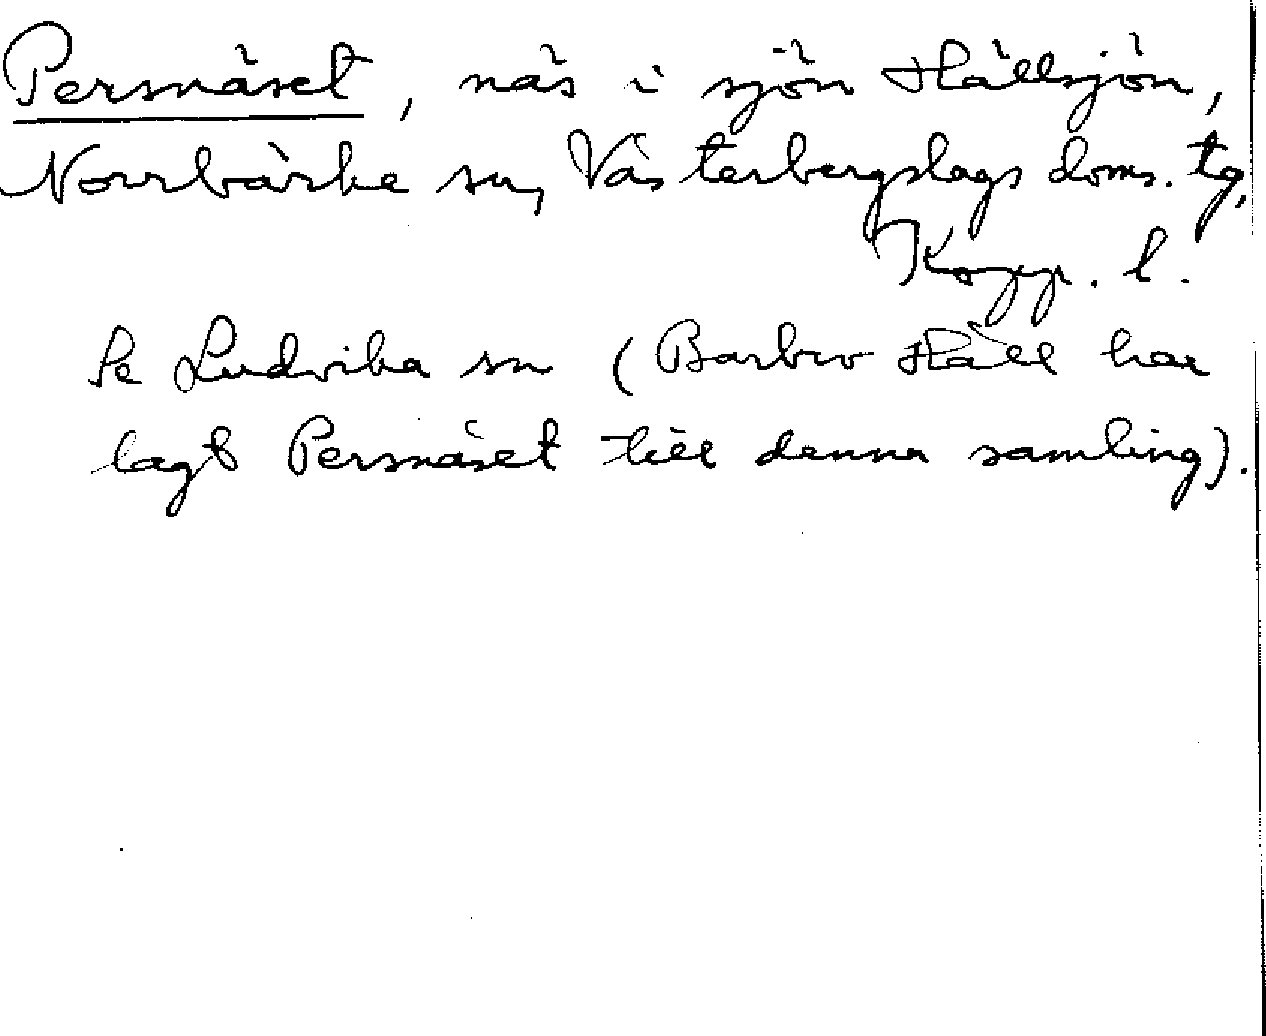 Persnäset, näs i sjön Hällsjön,
Norrbärke sn, Västerbergslags doms. tg,
Kopp. l.
Se Ludvika sn (Barbro Häll har
lagt Persnäset till denna samling).